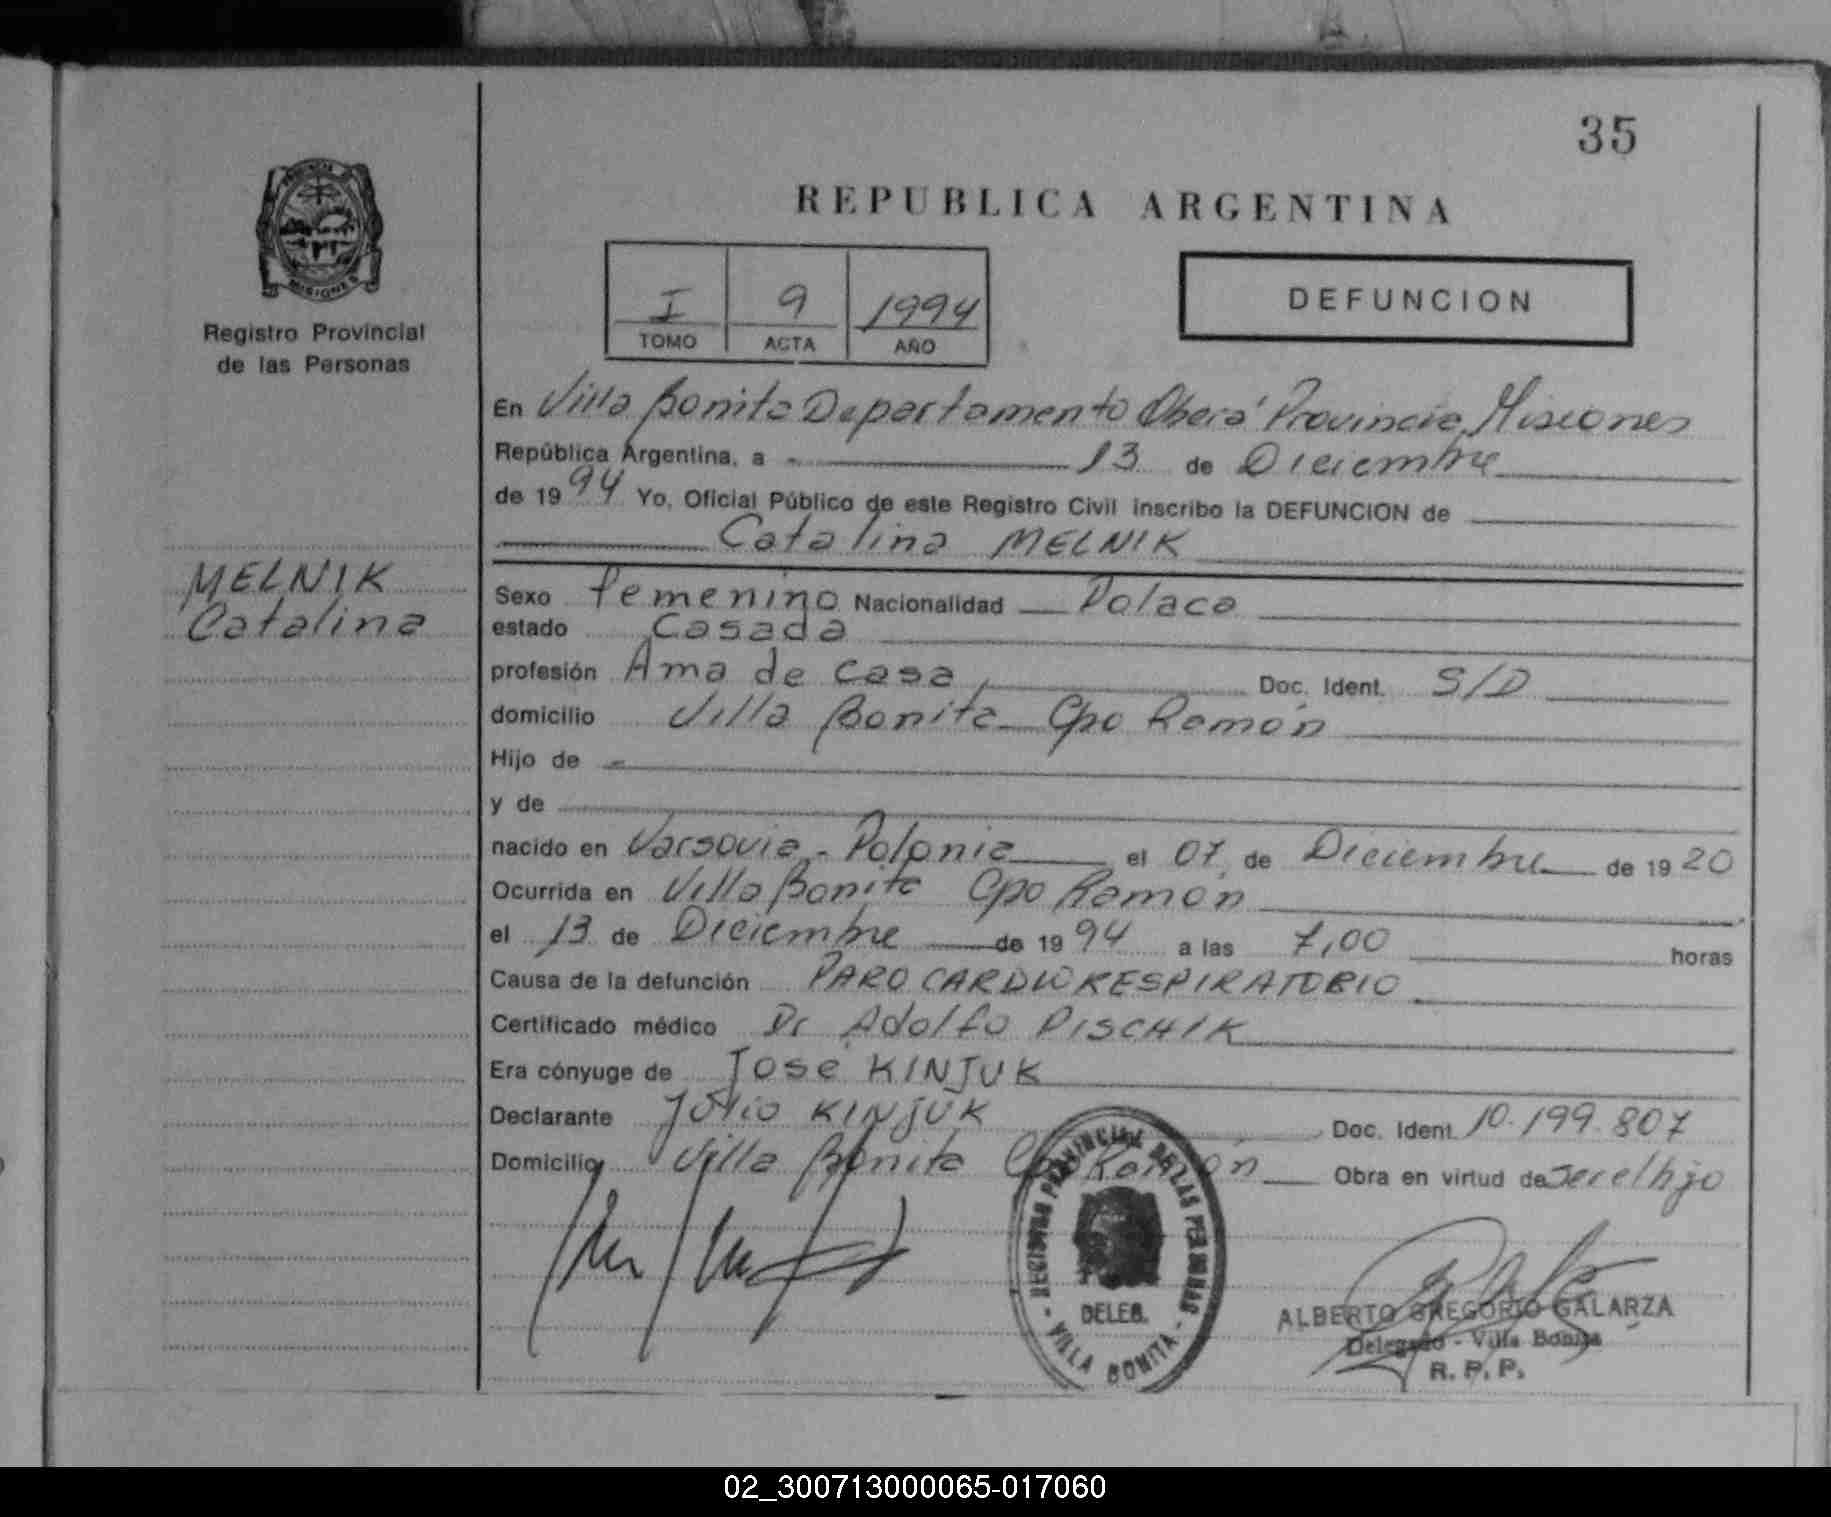 35
REPUBLICA ARGENTINA
PROVINCIA
MISIONES
Registro Provincial
de las Personas
I 9 1994
TOMO ACTA AÑO
DEFUNCION
En Villa Bonita Departamento Oberá Provincia Misiones
República Argentina, a 13 de Diciembre
de 1994 Yo, Oficial Público de este Registro Civil inscribo la DEFUNCION de
Catalina MELNIK
MELNIK
Catalina
Sexo femenino Nacionalidad Polaca
estado Casada
profesión Ama de casa Doc. Ident. S/D
domicilio Villa Bonita Cpo Ramón
Hijo de
y de
nacido en Varsovia - Polonia el 07 de Diciembre de 1920
Ocurrida en Villa Bonita Cpo Ramón
el 13 de Diciembre de 1994 a las 7,00 horas
Causa de la defunción PARO CARDIORESPIRATORIO
Certificado médico Dr Adolfo PISCHIK
Era cónyuge de José KINJUK
Declarante Julio KINJUK Doc. Ident. 10.199.807
Domicilio Villa Bonita Cpo Ramón Obra en virtud de ser el hijo
REGISTRO PROVINCIAL DE LAS PERSONAS
DELEG.
- VILLA BONITA -
ALBERTO GREGORIO GALARZA
Delegado - Villa Bonita
R. P. P.
02_300713000065-017060